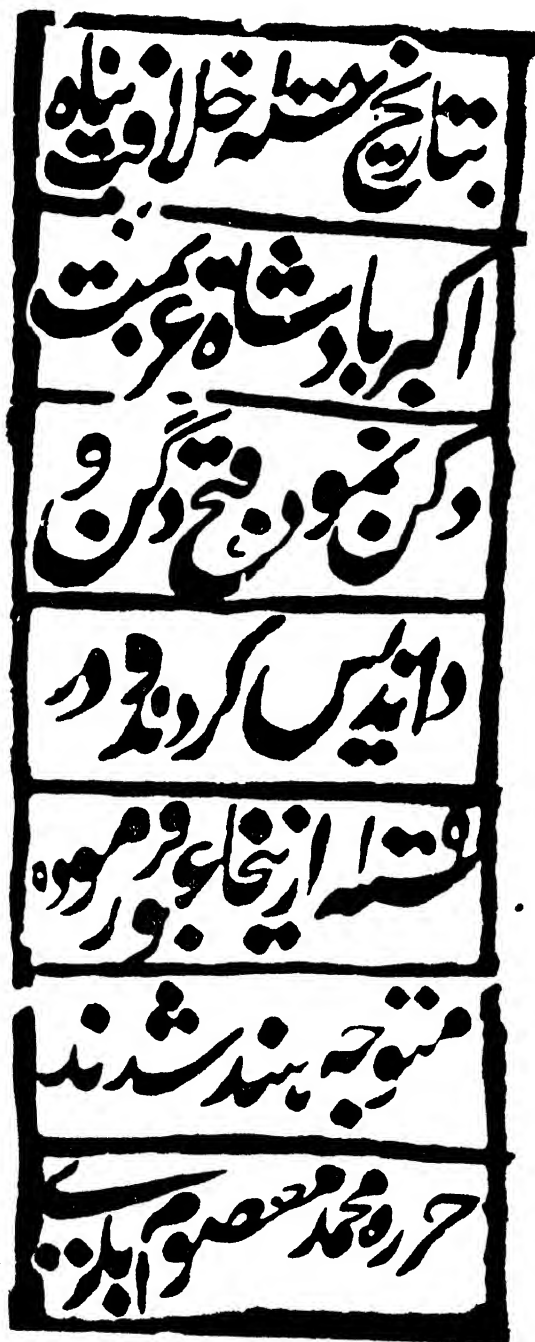 بتاریخ سنه خلافت پناه
اکبر بادشاه عزیمت
دکن نمود فتح دکن و
داندیس کردند و در
سنه از ینجا عبور فرموده
متوجه هند شدند
حرره محمد معصوم